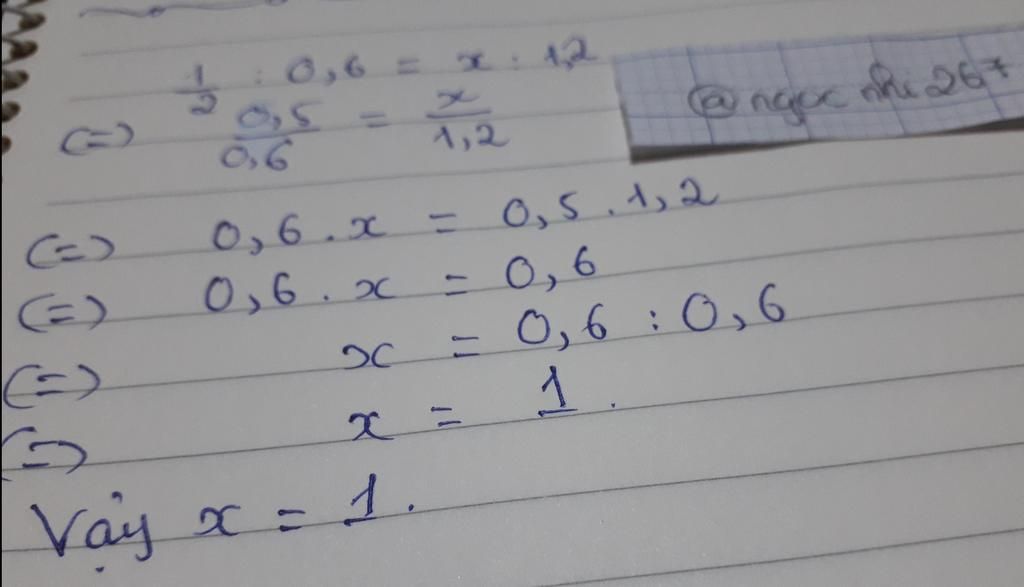 1/2 : 0,6 = x : 1,2
@ngocnhi267
(=) 0,5/0,6 = x/1,2
(=) 0,6 . x = 0,5 . 1,2
(=) 0,6 . x = 0,6
(=) x = 0,6 : 0,6
(=) x = 1.
Vậy x = 1.